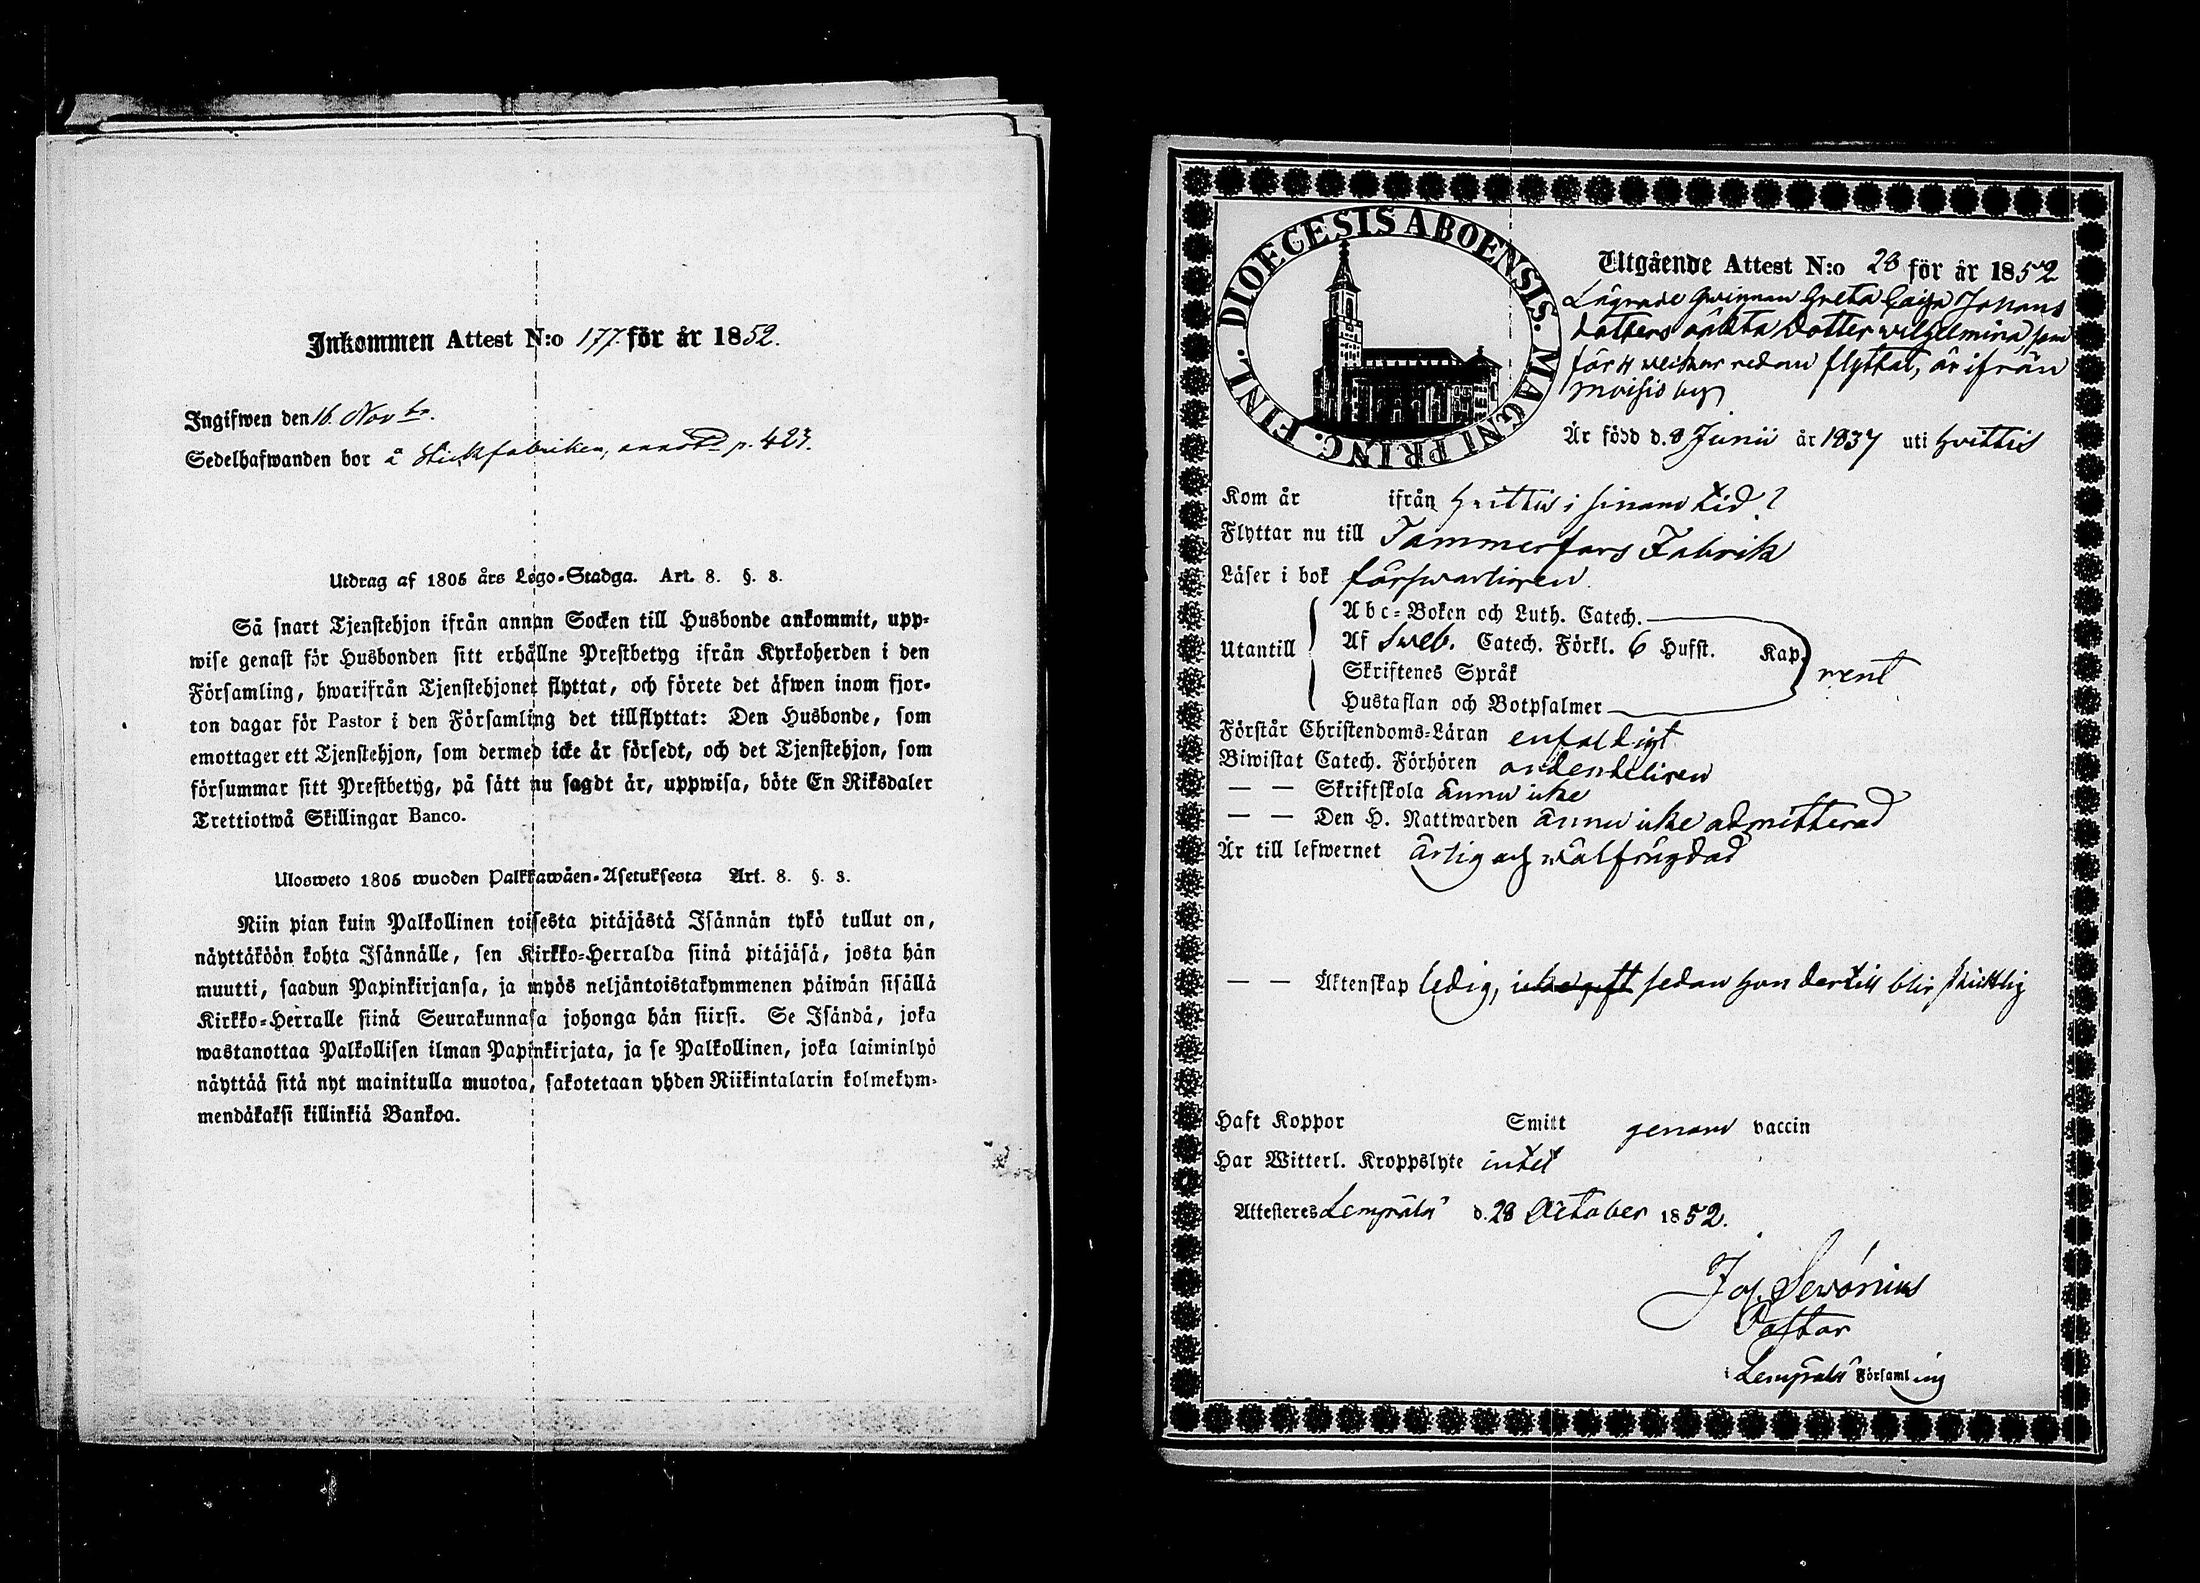 Inkommen Attest N:o 177. för år 1852.
Ingifwen den 16. Novbr.
Sedelhafwanden bor å Stickfabriken, annot. p. 423.
Utdrag af 1805 års Lego-Stadga. Art. 8. §. 8.
Så snart Tjenstehjon ifrån annan Socken till Husbonde ankommit, upp-
wise genast för Husbonden sitt erhållne Prestbetyg ifrån Kyrkoherden i den
Församling, hwarifrån Tjenstehjonet flyttat, och förete det äfwen inom fjor-
ton dagar för Pastor i den Församling det tillflyttat: Den Husbonde, som
emottager ett Tjenstehjon, som dermed icke är försedt, och det Tjenstehjon, som
försummar sitt Prestbetyg, på sätt nu sagdt är, uppwisa, böte En Riksdaler
Trettiotwå Skillingar Banco.
Ulosweto 1805 wuoden Palkkawäen-Asetuksesta Art. 8. §. 8.
Niin pian kuin Palkollinen toisesta pitäjästä Isännän tykö tullut on,
näyttäköön kohta Isännälle, sen Kirkko-Herralda siinä pitäjäsä, josta hän
muutti, saadun Papinkirjansa, ja myös neljäntoistakymmenen päiwän sisällä
Kirkko-Herralle siinä Seurakunnasa johonga hän siirsi. Se Isändä, joka
wastanottaa Palkollisen ilman Papinkirjata, ja se Palkollinen, joka laiminlyö
näyttää sitä nyt mainitulla muotoa, sakotetaan yhden Riikintalarin kolmekym-
mendäkaksi killinkiä Bankoa.
DIOECESIS ABOENSIS. MAGNI PRINC. FINL.
Utgående Attest N:o 28 för år 1852
Lägrade Qwinnan Greta Caisa Johans
dotters oäkta Dotter Wilhelmina, som
för 4 weckor redan flyttat, är ifrån
Moisio by
Är född d. 8 Junii år 1837 uti Hvittis
Kom år ifrån Hvittis i sinom tid?
Flyttar nu till Tammerfors Fabrik
Läser i bok förswarligen
Utantill
Abc-Boken och Luth. Catech.
Af Sweb. Catech. Förkl. 6 Hufst. Kap.
Skriftenes Språk
Hustaflan och Botpsalmer
rent
Förstår Christendoms-Läran enfaldigt
Biwistat Catech. Förhören ordenteligen
— — Skriftskola ännu icke
— — Den H. Nattwarden ännu icke admitterad
Är till lefwernet ärlig och wälfrägdad
— — Äktenskap ledig, icke gift sedan hon dertill blir skicklig
Haft Koppor Smitt genom vaccin
Har Witterl. Kroppslyte intet
Attesteres Lempälä d. 28 October 1852.
Jos. Sewónius
Pastor
i Lempälä Församling